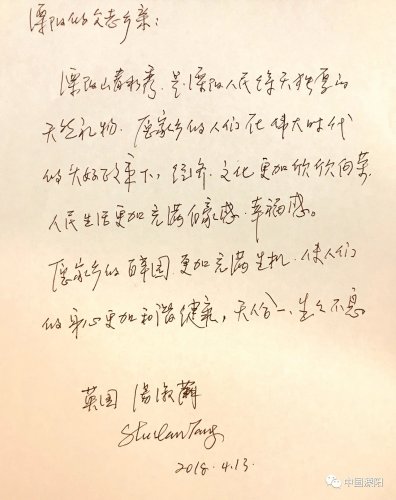 溧阳的父老乡亲：
溧阳山清水秀，是溧阳人民得天独厚的
天然礼物。愿家乡的人们在伟大时代
的大好政策下，经济、文化更加欣欣向荣，
人民生活更加充满自豪感、幸福感。
愿家乡的百草园更加充满生机，使人们
的身心更加和谐健康，天人合一、生生不息
英国 汤淑兰
Shulan Tang
2018.4.13.
中国溧阳